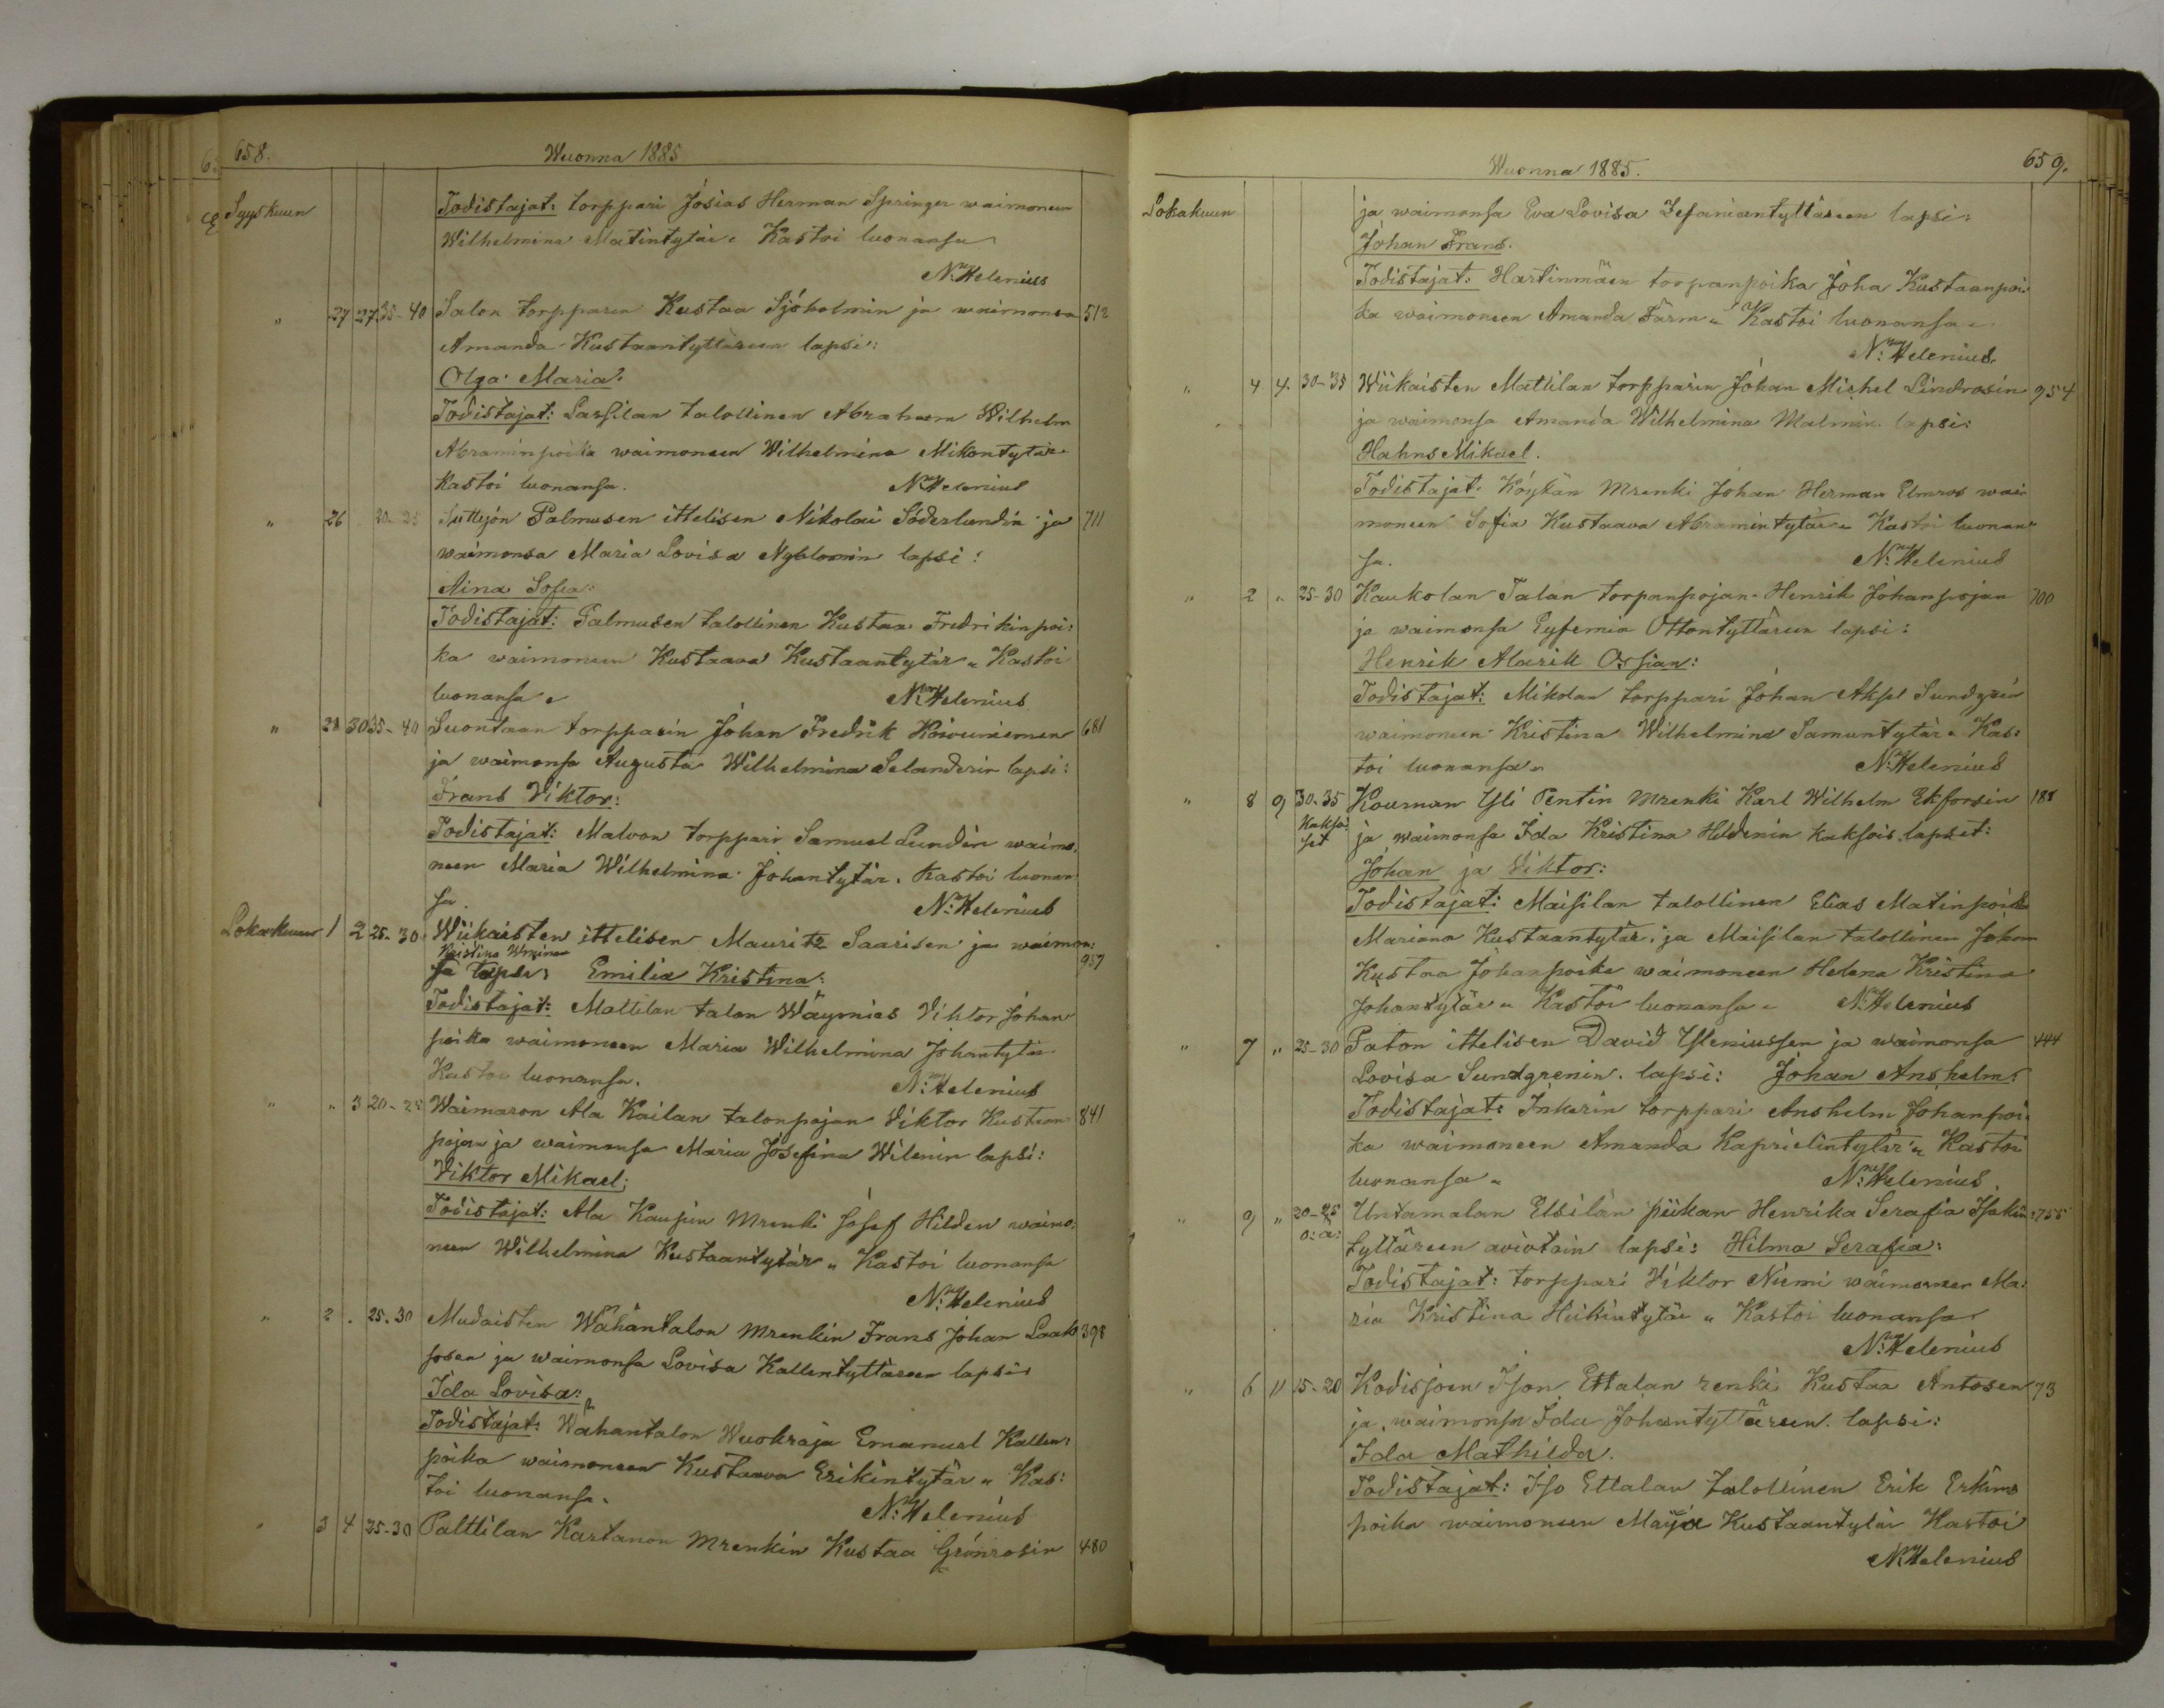 658.
Wuonna 1885
Syyskuun
Todistajat: torppari Josias Herman Springer waimoneen
Wilhelmina Matintytär. Kastoi luonansa
N: Helenius
" 27 27 35-40 Salon torpparin Kustaa Sjöholmin ja waimonsa 512
Amanda Kustaantyttäreen lapsi:
Olga Maria.
Todistajat: Lassilan talollinen Abraham Wilhelm
Abraminpoika waimoneen Wilhelmina Mikontytär.
Kastoi luonansa. N: Helenius
" 26 20-25 Palmusen ittelisen Nikolai Söderlundin ja 711
waimonsa Maria Lovisa Nyblomin lapsi:
Aina Sofia:
Todistajat: Palmusen talollinen Kustaa Fredrikinpoi:
ka waimoneen Kustaava Kustaantytär " Kastoi
luonansa. N: Helenius
" 28 30 35-40 Suontaan torpparin Johan Fredrik Koivuniemen 681
ja waimonsa Augusta Wilhelmina Selanderin lapsi:
Frans Viktor:
Todistajat: Malvon torppari Samuel Lundin waimo:
neen Maria Wilhelmina Johantytär. Kastoi luonan
sa. N: Helenius
Lokakuun 1 2 25-30 Wiikaisten ittelisen Mauritz Saarisen ja waimon: 957
Kristina
sa lapsi: Emilia Kristina:
Todistajat: Mattilan talon Wäymies Viktor Johan
poika waimoneen Maria Wilhelmina Johantytär
Kastoi luonansa. N: Helenius
" " 3 20-25 Waimaron Ala Kailan talonpojan Viktor Kustaan 841
pojan ja waimonsa Maria Josefina Wilenin lapsi:
Viktor Mikael;
Todistajat: Ala Kaujun Mrenki Josef Hilden waimo:
neen Wilhelmina Kustaantytär " Kastoi luonansa
N: Helenius
" 2 . 25-30 Mudaisten Wähäntalon Mrenkin Frans Johan Laak 398
sosen ja waimonsa Lovisa Kallentyttäreen lapsi:
Ida Lovisa:
Todistajat: Wähäntalon Wuokraja Emanuel Kallen:
poika waimoneen Kustaava Erikintytär " Kas:
toi luonansa. N: Helenius
3 4 25-30 Palttilan Kartanon Mrenkin Kustaa Grönrosin 480
659.
Wuonna 1885.
Lokakuun
ja waimonsa Eva Lovisa Zefaniantyttäreen lapsi:
Johan Frans.
Todistajat: Hartinmäen torpanpoika Joha Kustaanpoi:
ka waimoneen Amanda Färm " Kastoi luonansa "
N: Helenius.
" 4 4. 30-35 Wiikaisten Mattilan torpparin Johan Michel Lindrosin 954
ja waimonsa Amanda Wilhelmina Malmin lapsi:
Hahns Mikael.
Todistajat: Köykän Mrenki Johan Herman Elmros wai:
moneen Sofia Kustaava Abramintytär " Kastoi luonan:
sa. N: Helenius
" 2 " 25-30 Kaukolan Talan torpanpojan Henrik Johanpojan 700
ja waimonsa Eyfemia Ottontyttäreen lapsi:
Henrik Alarik Ossian:
Todistajat: Mikolan torppari Johan Aksel Sundgren
waimoneen Kristina Wilhelmina Samuntytär " Kas:
toi luonansa " N: Helenius
" 8 9 30-35 Kouman Yli Pentin Mrenki Karl Wilhelm Ekforsin 188
Kaksoi:
set ja waimonsa Ida Kristina Hildenin kaksois lapset:
Johan ja Viktor:
Todistajat: Maisilan talollinen Elias Matinpoika
Mariana Kustaantytär, ja Maisilan talollinen Johan
Kustaa Johanpoika waimoneen Helena Kristina
Johantytär " Kastoi luonansa " N: Helenius
" 7 " 25-30 Paton ittelisen David Yleniussen ja waimonsa 444
Lovisa Sundgrenin lapsi: Johan Anshelm:
Todistajat: Inkerin torppari Anshelm Johanpoi:
ka waimoneen Amanda Kaprielintytär " Kastoi
luonansa " N: Helenius.
" 9 " 20-25 Untamalan Elsilän piikan Henrika Serafia Isakin: 755
o: ä: tyttäreen aviotoin lapsi: Hilma Serafia:
Todistajat: torppari Viktor Niemi waimoneen Ma:
ria Kristina Heikintytär " Kastoi luonansa
N: Helenius
" 6 11 15-20 Kodisjoen Ison Ettalan renki Kustaa Antosen 73
ja waimonsa Ida Johantyttäreen lapsi:
Ida Mathilda.
Todistajat: Iso Ettalan talollinen Erik Erkin
poika waimoneen Maija Kustaantytär Kastoi
N: Helenius